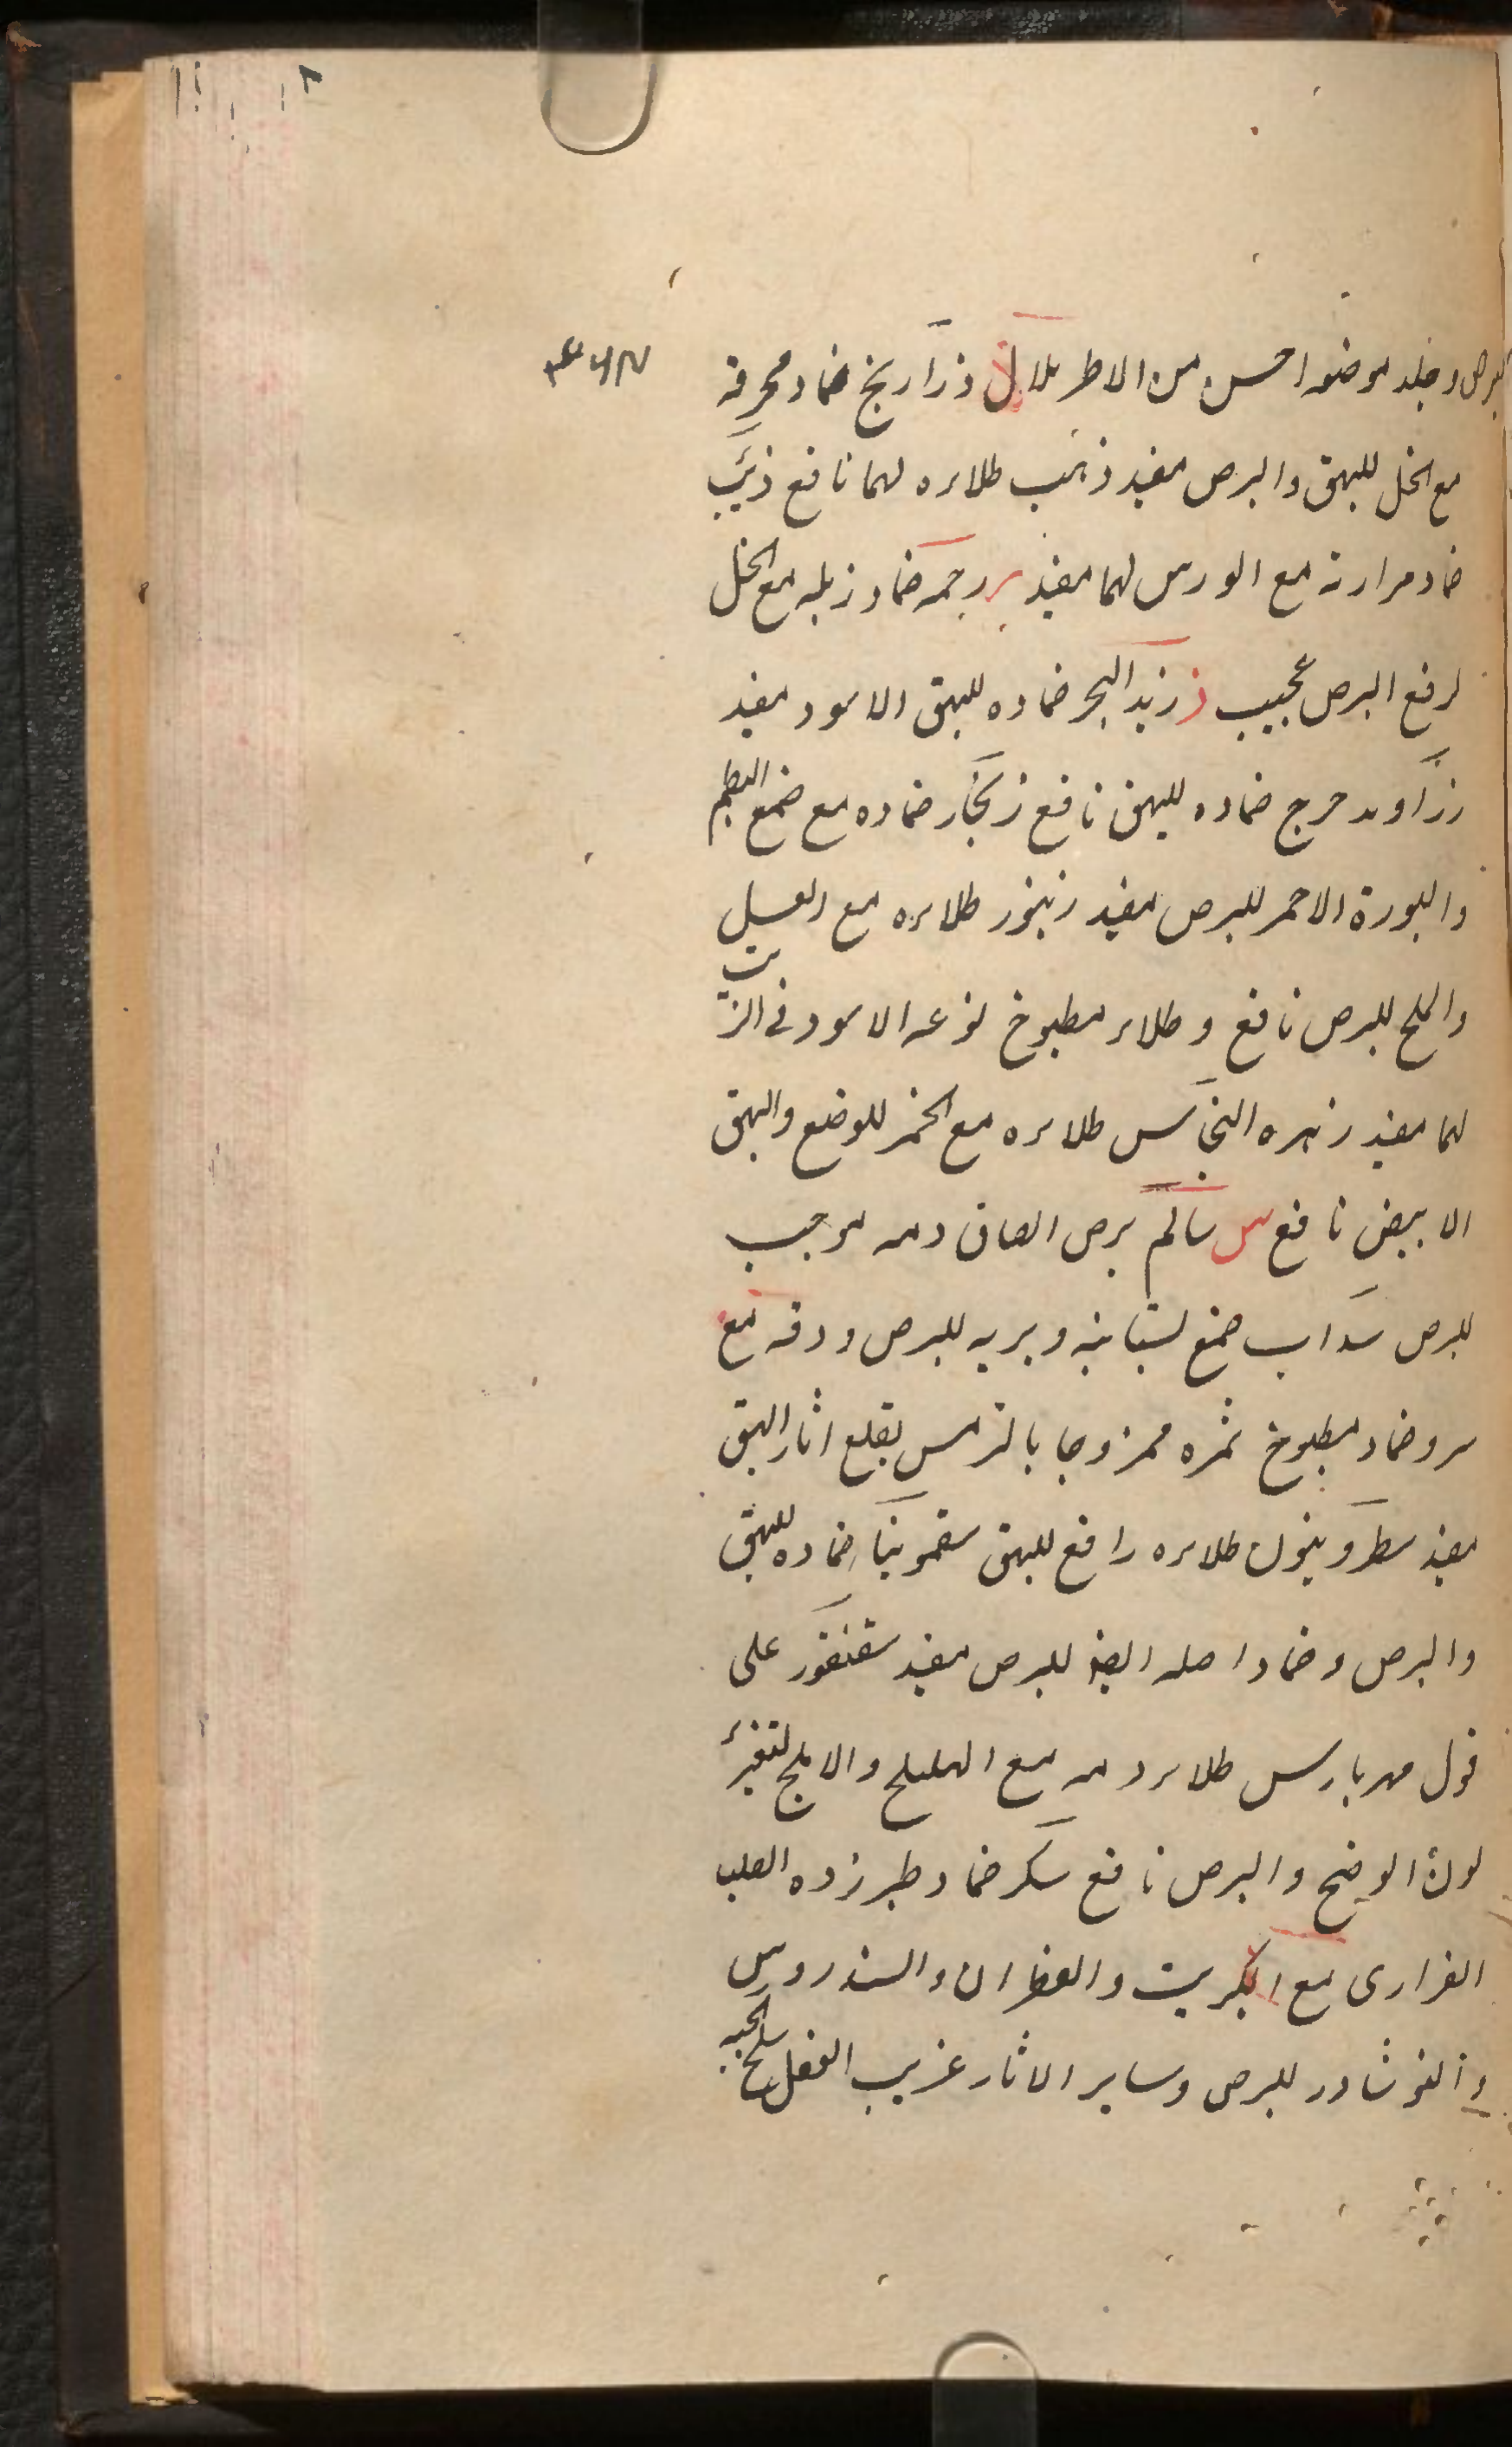 البرص وجلد موضعه احسن من الاطريلال ذ ذراريخ ضماد محرقه
مع الخل للبهق والبرص مفيد ذهب طلاءه لهما نافع ذئب
ضماد مرارته مع الورس لهما مفيد ر رخمه ضماد زبله مع الخل
لرفع البرص عجيب ز زبد البحر ضماده للبهق الاسود مفيد
زراوند حرج ضماده للبهق نافع زنجار ضماده مع صمغ البطم
والبورة الاحمر للبرص مفيد زيخور طلاءه مع العسل
والملح للبرص نافع وطلاء مطبوخ نوعه الاسود في الزيت
لهما مفيد زهره النحاس طلاءه مع الخمر للوضع والبهق
الابيض نافع س سالم برص الصاق دمه موجب
للبرص سداب صمغ بستانيه وبريه للبرص ودقه مع
سرو ضماد مطبوخ ثمره ممزوجا بالترمس يقلع اثار البهق
مفيد سطرونيون طلاءه رافع للبهق سقمونيا ضماده للبهق
والبرص وضماد اصله ايضا للبرص مفيد سقنقور على
قول مهربارس طلاء دمه مع الهليلج والاملج لتغير
لون الوضح والبرص نافع سكر ضماد طبرزده الصلب
مع الكبريت والسندروس
والنوشادر للبرص وساير الاثار غريب الفعل سلخ الحيه